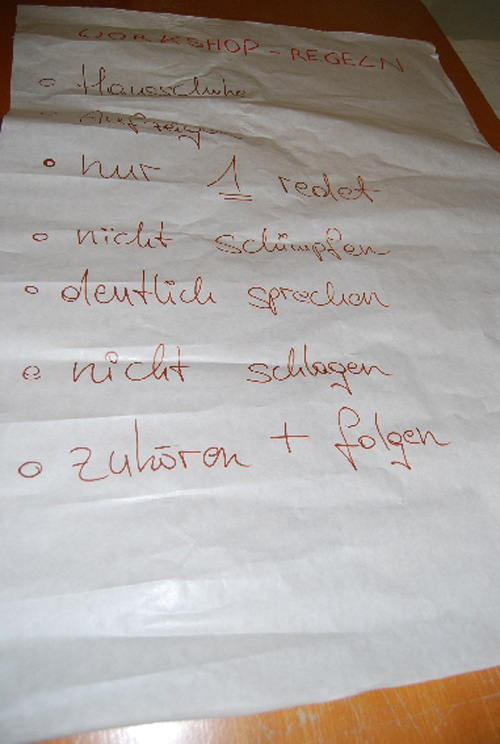 WORKSHOP - REGELN
Hausschuhe
Aufzeigen
nur 1 redet
nicht schimpfen
deutlich sprechen
nicht schlagen
zuhören + folgen